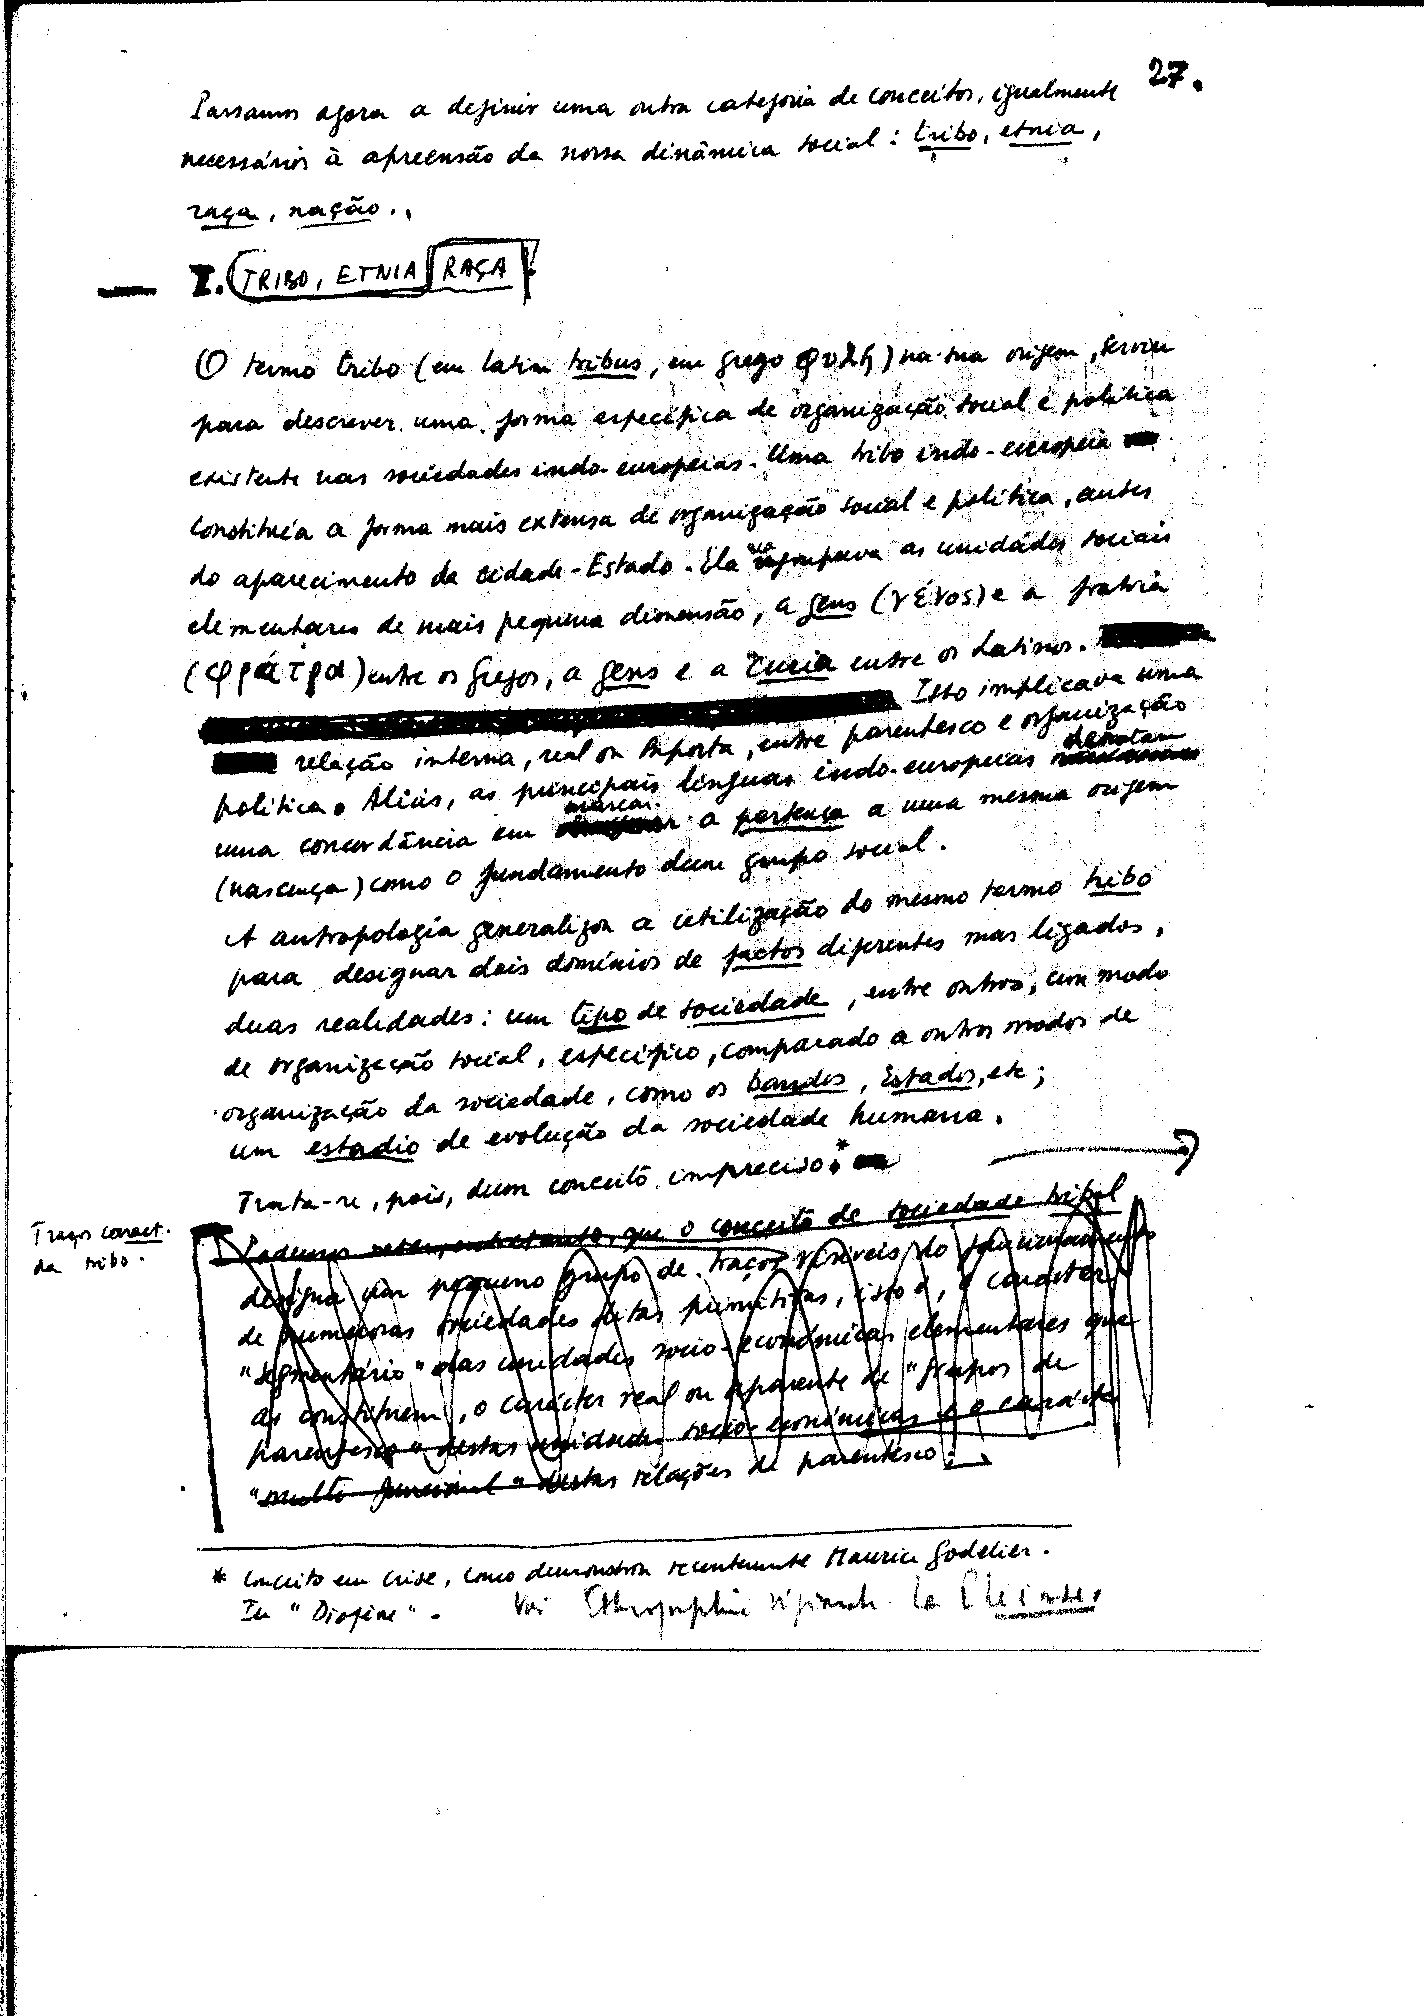 27.
Passamos agora a definir uma outra categoria de conceitos, igualmente
necessários à apreensão da nossa dinâmica social: tribo, etnia,
raça, nação.
I. TRIBO, ETNIA RAÇA
O termo tribo (em latim tribus, em grego φυλή) na sua origem, serviu
para descrever uma forma específica de organização social e política
existente nas sociedades indo-europeias. Uma tribo indo-europeia
constituía a forma mais extensa de organização social e política, antes
do aparecimento da cidade-Estado. Ela agrupava as unidades sociais
elementares de mais pequena dimensão, a gens (γένος) e a fratria
(φράτρα) entre os gregos, a gens e a curia entre os Latinos.
Isto implicava uma
relação interna, real ou suposta, entre parentesco e organização
política. Aliás, as principais línguas indo-europeias denotam
uma concordância em marcar a pertença a uma mesma origem
(nascença) como o fundamento dum grupo social.
A antropologia generalizou a utilização do mesmo termo tribo
para designar dois domínios de factos diferentes mas ligados,
duas realidades: um tipo de sociedade, entre outros, um modo
de organização social, específico, comparado a outros modos de
organização da sociedade, como os Bandos, Estados, etc;
um estadio de evolução da sociedade humana.
Trata-se, pois, dum conceito impreciso.*
Traços caract.
da tribo.
Podemos reter, entretanto, que o conceito de sociedade tribal
designa um pequeno grupo de traços visíveis do funcionamento
de numerosas sociedades ditas primitivas, isto é, o carácter
"segmentário" das unidades socio-económicas elementares que
as constituem, o carácter real ou aparente de "grupos de
parentesco" destas unidades socio-económicas e o carácter
"multi-funcional" destas relações de parentesco.
* Conceito em crise, como demonstrou recentemente Maurice Godelier.
In "Diogène". Voir la Pleiades